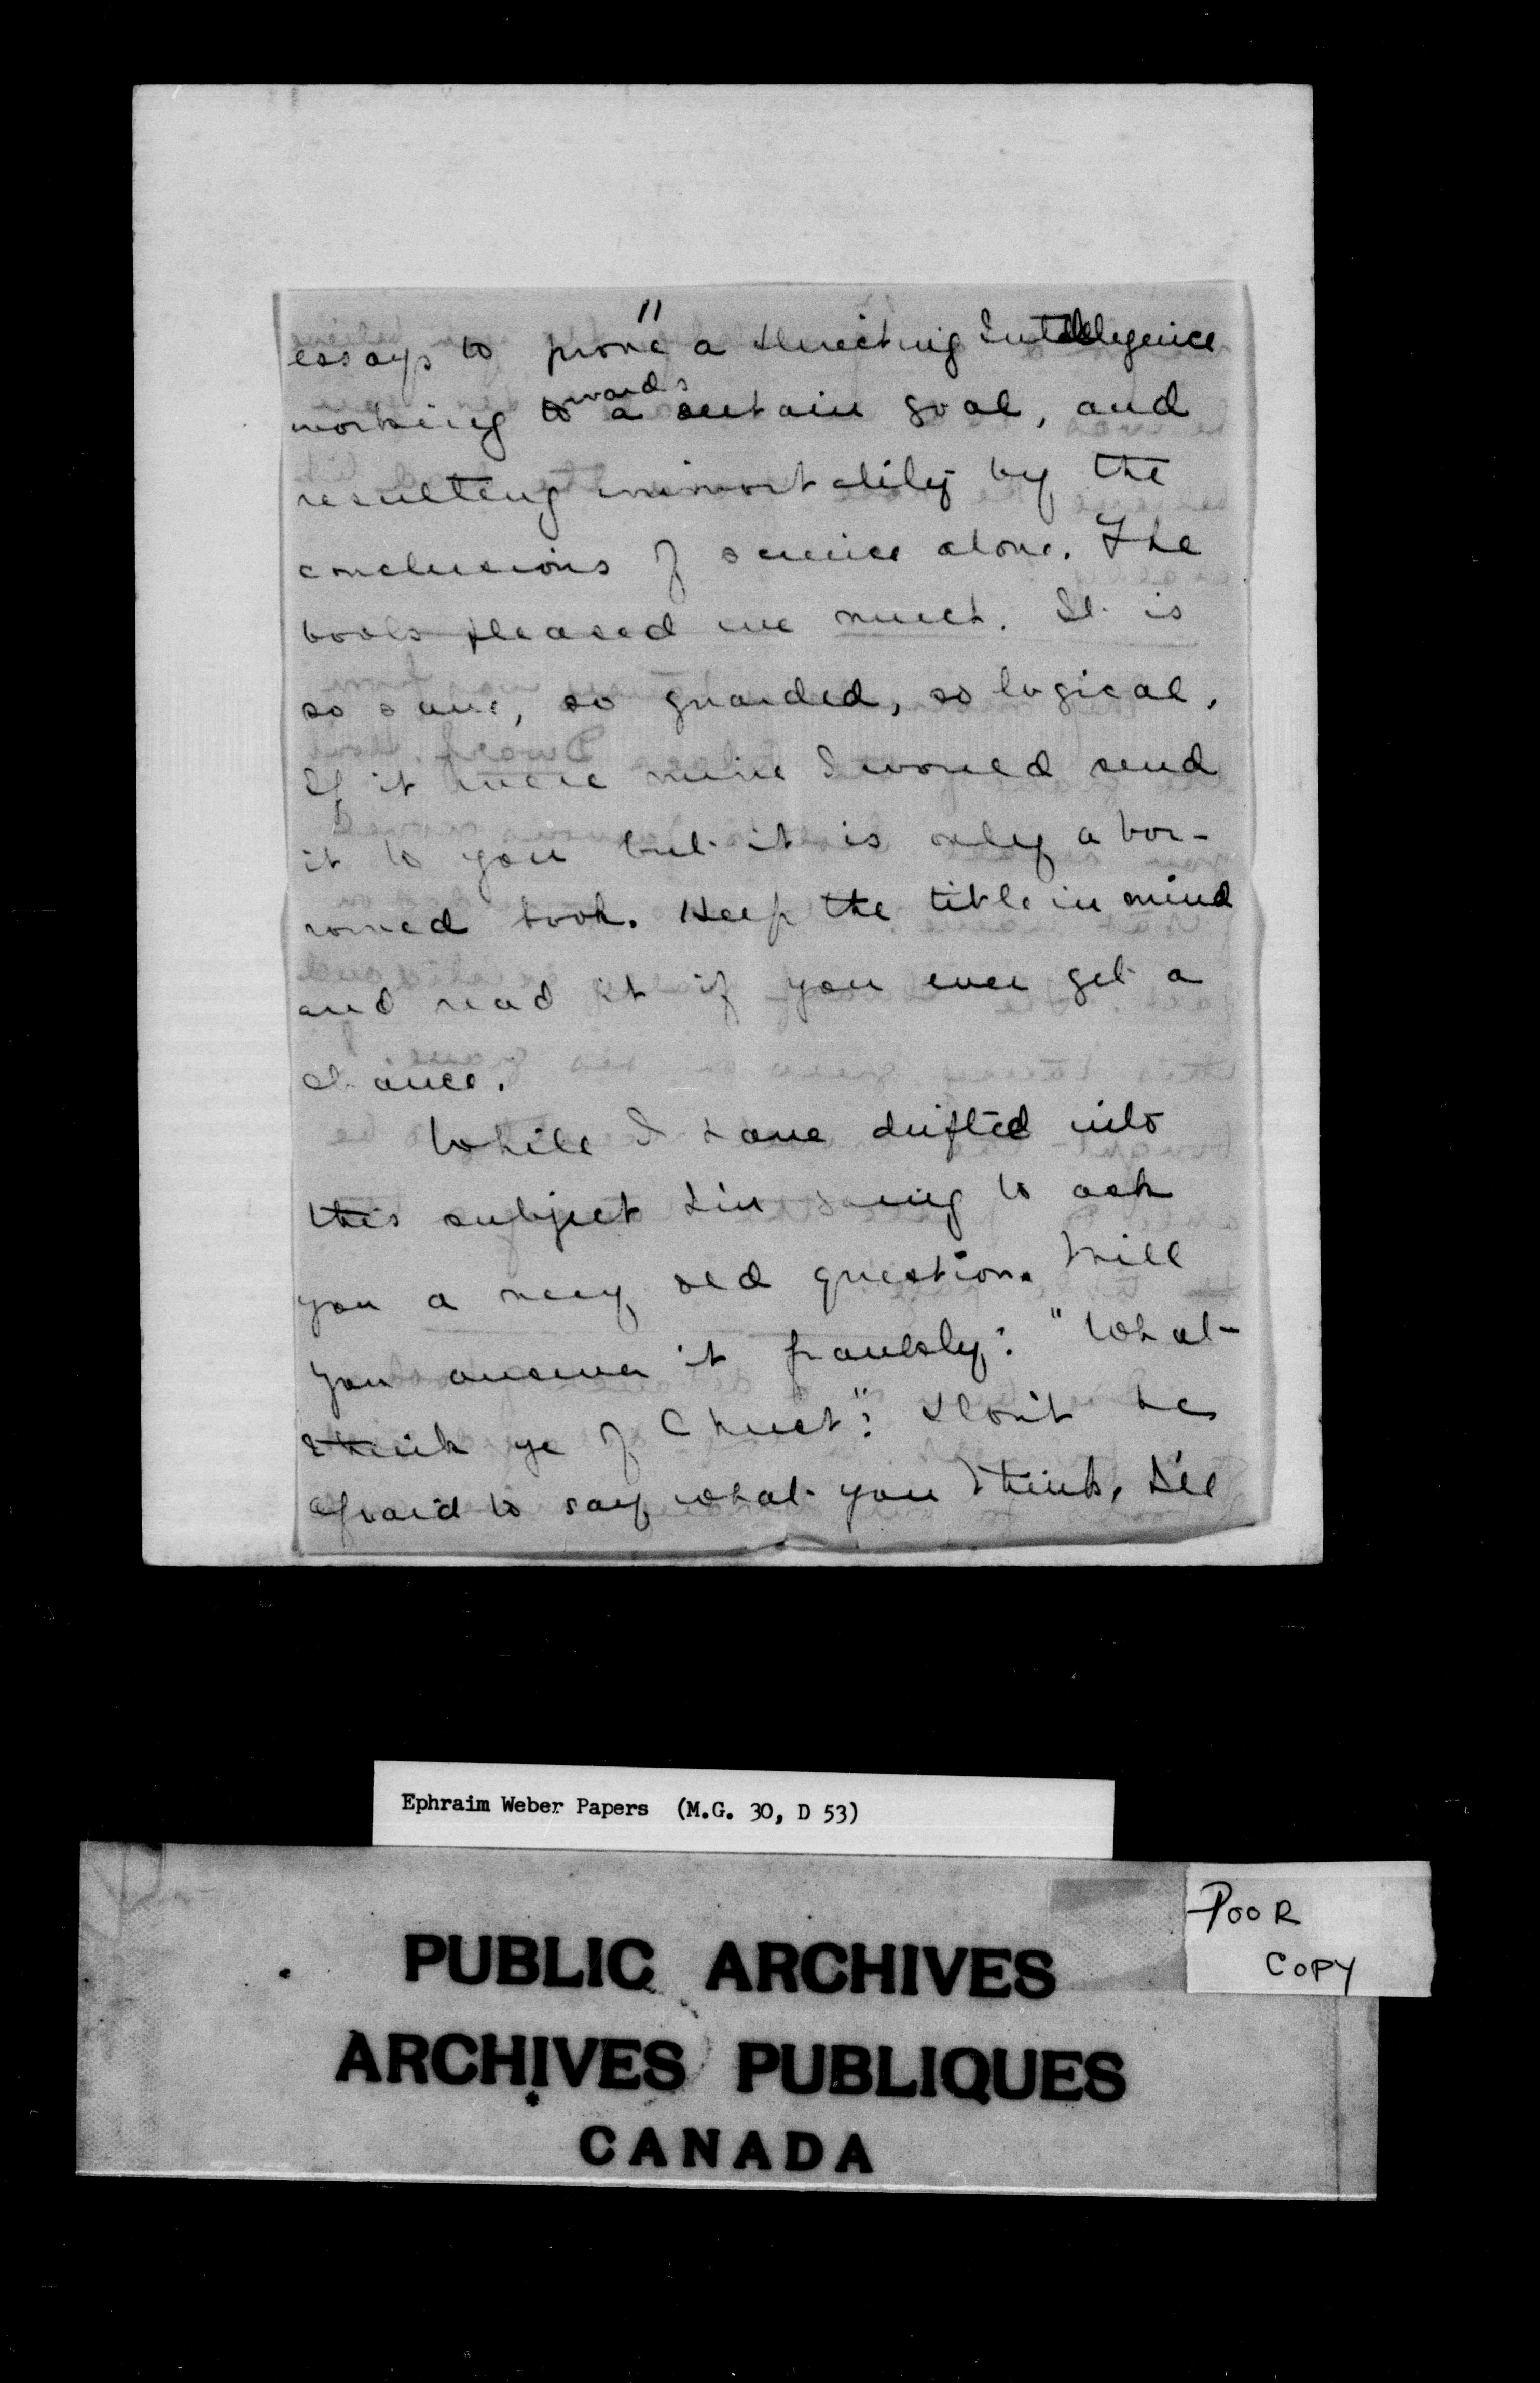 11
essays to prove a directing Intelligence
working towards a certain goal, and
resulting immortality by the
conclusions of science alone. The
book pleased me much. It is
so sane, so guarded, so logical.
If it were mine I would send
it to you but it is only a bor-
rowed book. Keep the title in mind
and read it if you ever get a
chance.
While I have drifted into
this subject I'm going to ask
you a very old question. Will
you answer it frankly: "What
think ye of Christ"? Don't be
afraid to say what you think. I'll
Ephraim Weber Papers (M.G. 30, D 53)
POOR
COPY
PUBLIC ARCHIVES
ARCHIVES PUBLIQUES
CANADA